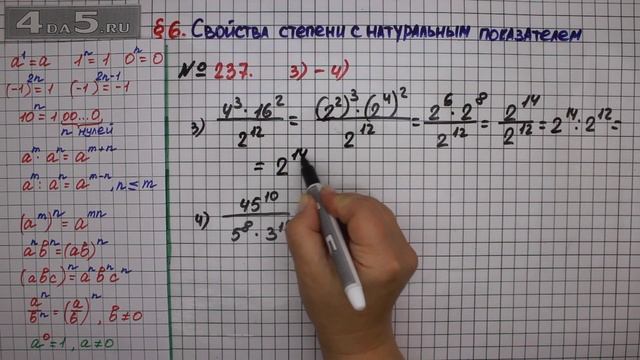 4DA5.RU
§6. Свойства степени с натуральным показателем
№ 237. 3)–4)
a¹=a 1ⁿ=1 0ⁿ=0
(-1)²ⁿ=1 (-1)²ⁿ⁻¹=-1
10ⁿ=1 00...0,
n нулей
aᵐ·aⁿ=aᵐ⁺ⁿ
aᵐ:aⁿ=aᵐ⁻ⁿ, n≤m
(aᵐ)ⁿ=aᵐⁿ
aⁿbⁿ=(ab)ⁿ
(abc)ⁿ=aⁿbⁿcⁿ
aⁿ/bⁿ=(a/b)ⁿ, b≠0
a⁰=1, a≠0
3) 4³·16²/2¹² = (2²)³·(2⁴)²/2¹² = 2⁶·2⁸/2¹² = 2¹⁴/2¹² = 2¹⁴:2¹² =
= 2¹⁴
4) 45¹⁰/5⁸·3